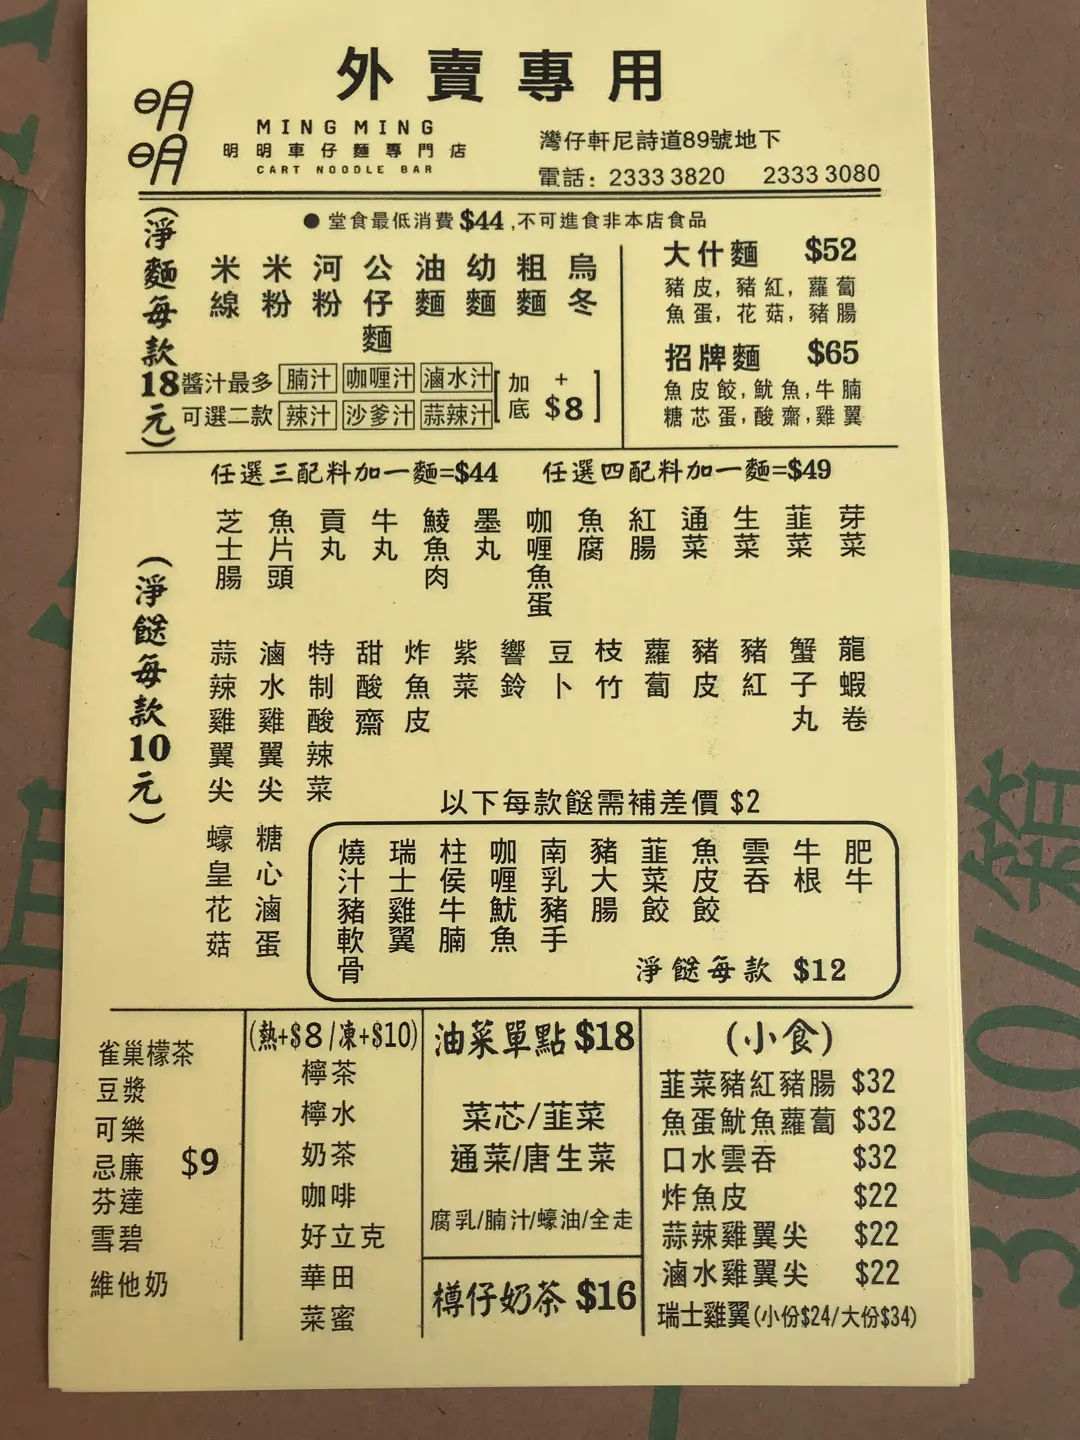 外賣專用
明明
MING MING
明明車仔麵專門店
CART NOODLE BAR
灣仔軒尼詩道89號地下
電話：2333 3820 2333 3080
●堂食最低消費$44,不可進食非本店食品
(淨麵每款18元)
米線
米粉
河粉
公仔麵
油麵
幼麵
粗麵
烏冬
醬汁最多 腩汁 咖喱汁 滷水汁
可選二款 辣汁 沙爹汁 蒜辣汁
[加底 +$8]
大什麵 $52
豬皮,豬紅,蘿蔔
魚蛋,花菇,豬腸
招牌麵 $65
魚皮餃,魷魚,牛腩
糖芯蛋,酸齋,雞翼
任選三配料加一麵=$44 任選四配料加一麵=$49
(淨餸每款10元)
芝士腸
魚片頭
貢丸
牛丸
鯪魚肉
墨丸
咖喱魚蛋
魚腐
紅腸
通菜
生菜
韮菜
芽菜
蒜辣雞翼尖
滷水雞翼尖
特制酸辣菜
甜酸齋
炸魚皮
紫菜
響鈴
豆卜
枝竹
蘿蔔
豬皮
豬紅
蟹子丸
龍蝦卷
蠔皇花菇
糖心滷蛋
以下每款餸需補差價 $2
燒汁豬軟骨
瑞士雞翼
柱侯牛腩
咖喱魷魚
南乳豬手
豬大腸
韮菜餃
魚皮餃
雲吞
牛根
肥牛
淨餸每款 $12
雀巢檬茶
豆漿
可樂
忌廉 $9
芬達
雪碧
維他奶
(熱+$8/凍+$10)
檸茶
檸水
奶茶
咖啡
好立克
華田
菜蜜
油菜單點$18
菜芯/韮菜
通菜/唐生菜
腐乳/腩汁/蠔油/全走
樽仔奶茶 $16
(小食)
韮菜豬紅豬腸 $32
魚蛋魷魚蘿蔔 $32
口水雲吞 $32
炸魚皮 $22
蒜辣雞翼尖 $22
滷水雞翼尖 $22
瑞士雞翼(小份$24/大份$34)
300/箱